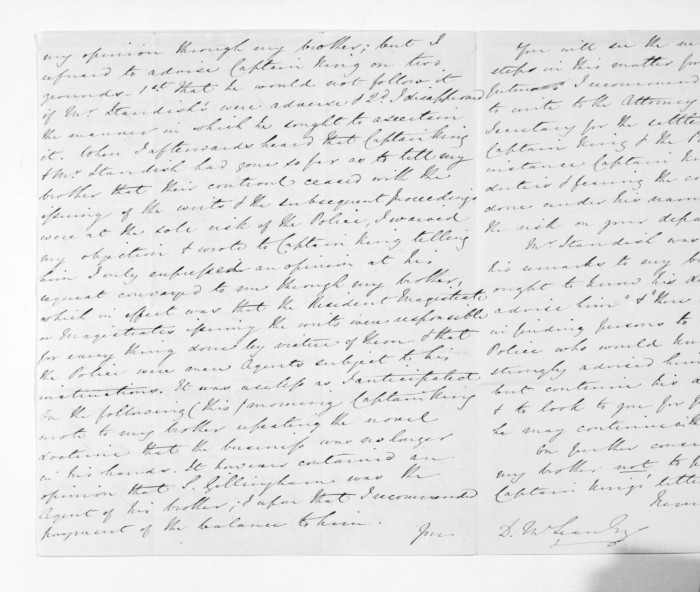 my opinion through my brother; but I
refused to advise Captain King on two
grounds. 1st that he would not follow it
if Mr. Standish's were adverse & 2d. I disapproved
the manner in which he sought to ascertain
it. When I afterwards heard that Captain King
& Mr. Standish had gone so far as to tell my
brother that their control ceased with the
issuing of the writs & the subsequent proceedings
were at the sole risk of the Police, I waived
my objection & wrote to Captain King telling
him I only expressed an opinion at his
request conveyed to me through my brother,
which in effect was that the Resident Magistrate
or Magistrates issuing the writs were responsible
for every thing done by virtue of them & that
the Police were mere Agents subject to his
instructions. It was useless as I anticipated
for the following (this) morning Captain King
wrote to my brother repeating the novel
doctrine that the business was no longer
in his hands. It however contained an
opinion that S. Gillingham was the
Agent of his brother; & upon that I recommended
payment of the balance to him.
You
You will see the ne
steps in this matter for
future I recommend
to write to the Attorney
Secretary for the settle
Captain King & the P
instance Captain K
duties & fearing the co
done under his name
the risk on your depa
Mr. Standish was
his remarks to my br
ought to know his d
advise him" & "there
in finding persons to
Police who would un
strongly advised him
but continue his
& to look to you for p
he may continue
On further consi
my brother not to p
Captain King's lette
D. McLean Esq